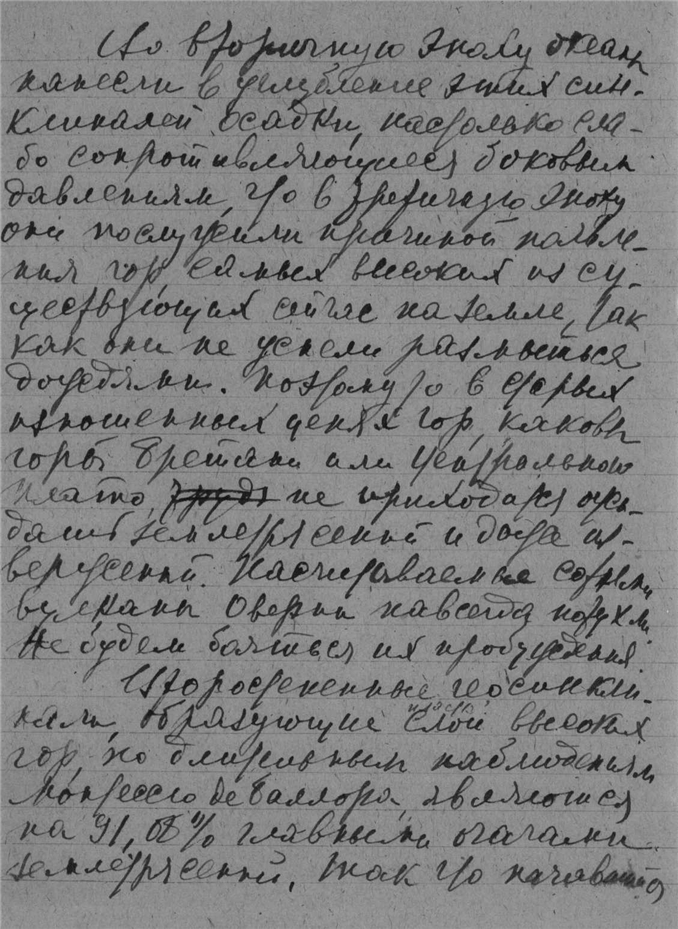 Во вторичную эпоху океаны
нанесли в углубление этих син-
клиналей осадки, настолько сла-
бо сопротивляющиеся боковым
давлениям, что в третичную эпоху
они послужили причиной появле-
ния гор, самых высоких из су-
ществующих сейчас на земле, так
как они не успели размыться
дождями. Поэтому то в старых
изношенных цепях гор, каковы
горы Бретани или Центрального
плато, не приходится ожи-
дать землетрясений и даже из-
вержений. Насчитываемые сотнями
вулканы Оверни навсегда потухли
Не будем бояться их пробуждения.
геосинкли-
нали, образующие слой высоких
гор, по длительным наблюдениям
Монтессю де Баллора, являются
на 91,08% главными очагами
землетрясений, так что